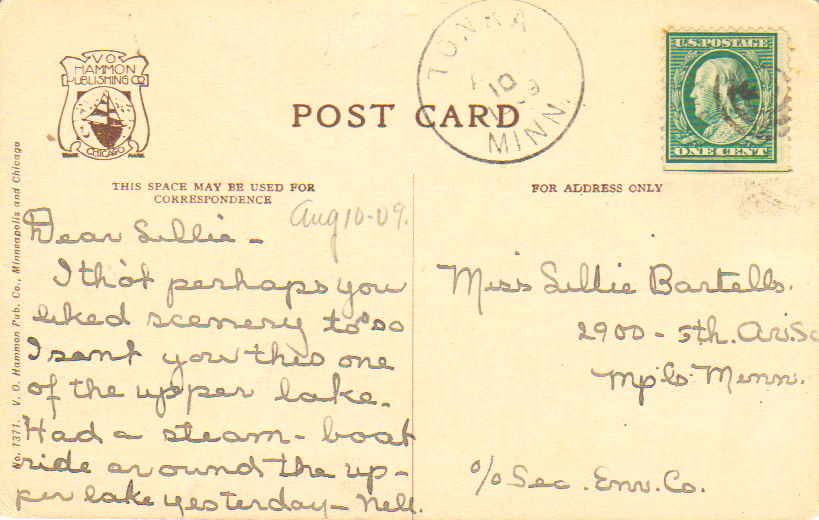 V.O.
HAMMON
PUBLISHING CO.
TRADE MARK
CHICAGO
POST CARD
TONKA
10
MINN.
U.S. POSTAGE
ONE CENT
THIS SPACE MAY BE USED FOR
CORRESPONDENCE
FOR ADDRESS ONLY
No. 1371. V. O. Hammon Pub. Co., Minneapolis and Chicago
Aug 10-09.
Dear Lillie-
I tho't perhaps you
liked scenery too so
I sent you this one
of the upper lake.
Had a steam-boat
ride around the up-
per lake yesterday- Nell.
Miss Lillie Bartells.
2900 - 5th. Av. So
Mpls Minn.
c/o Sec. Env. Co.